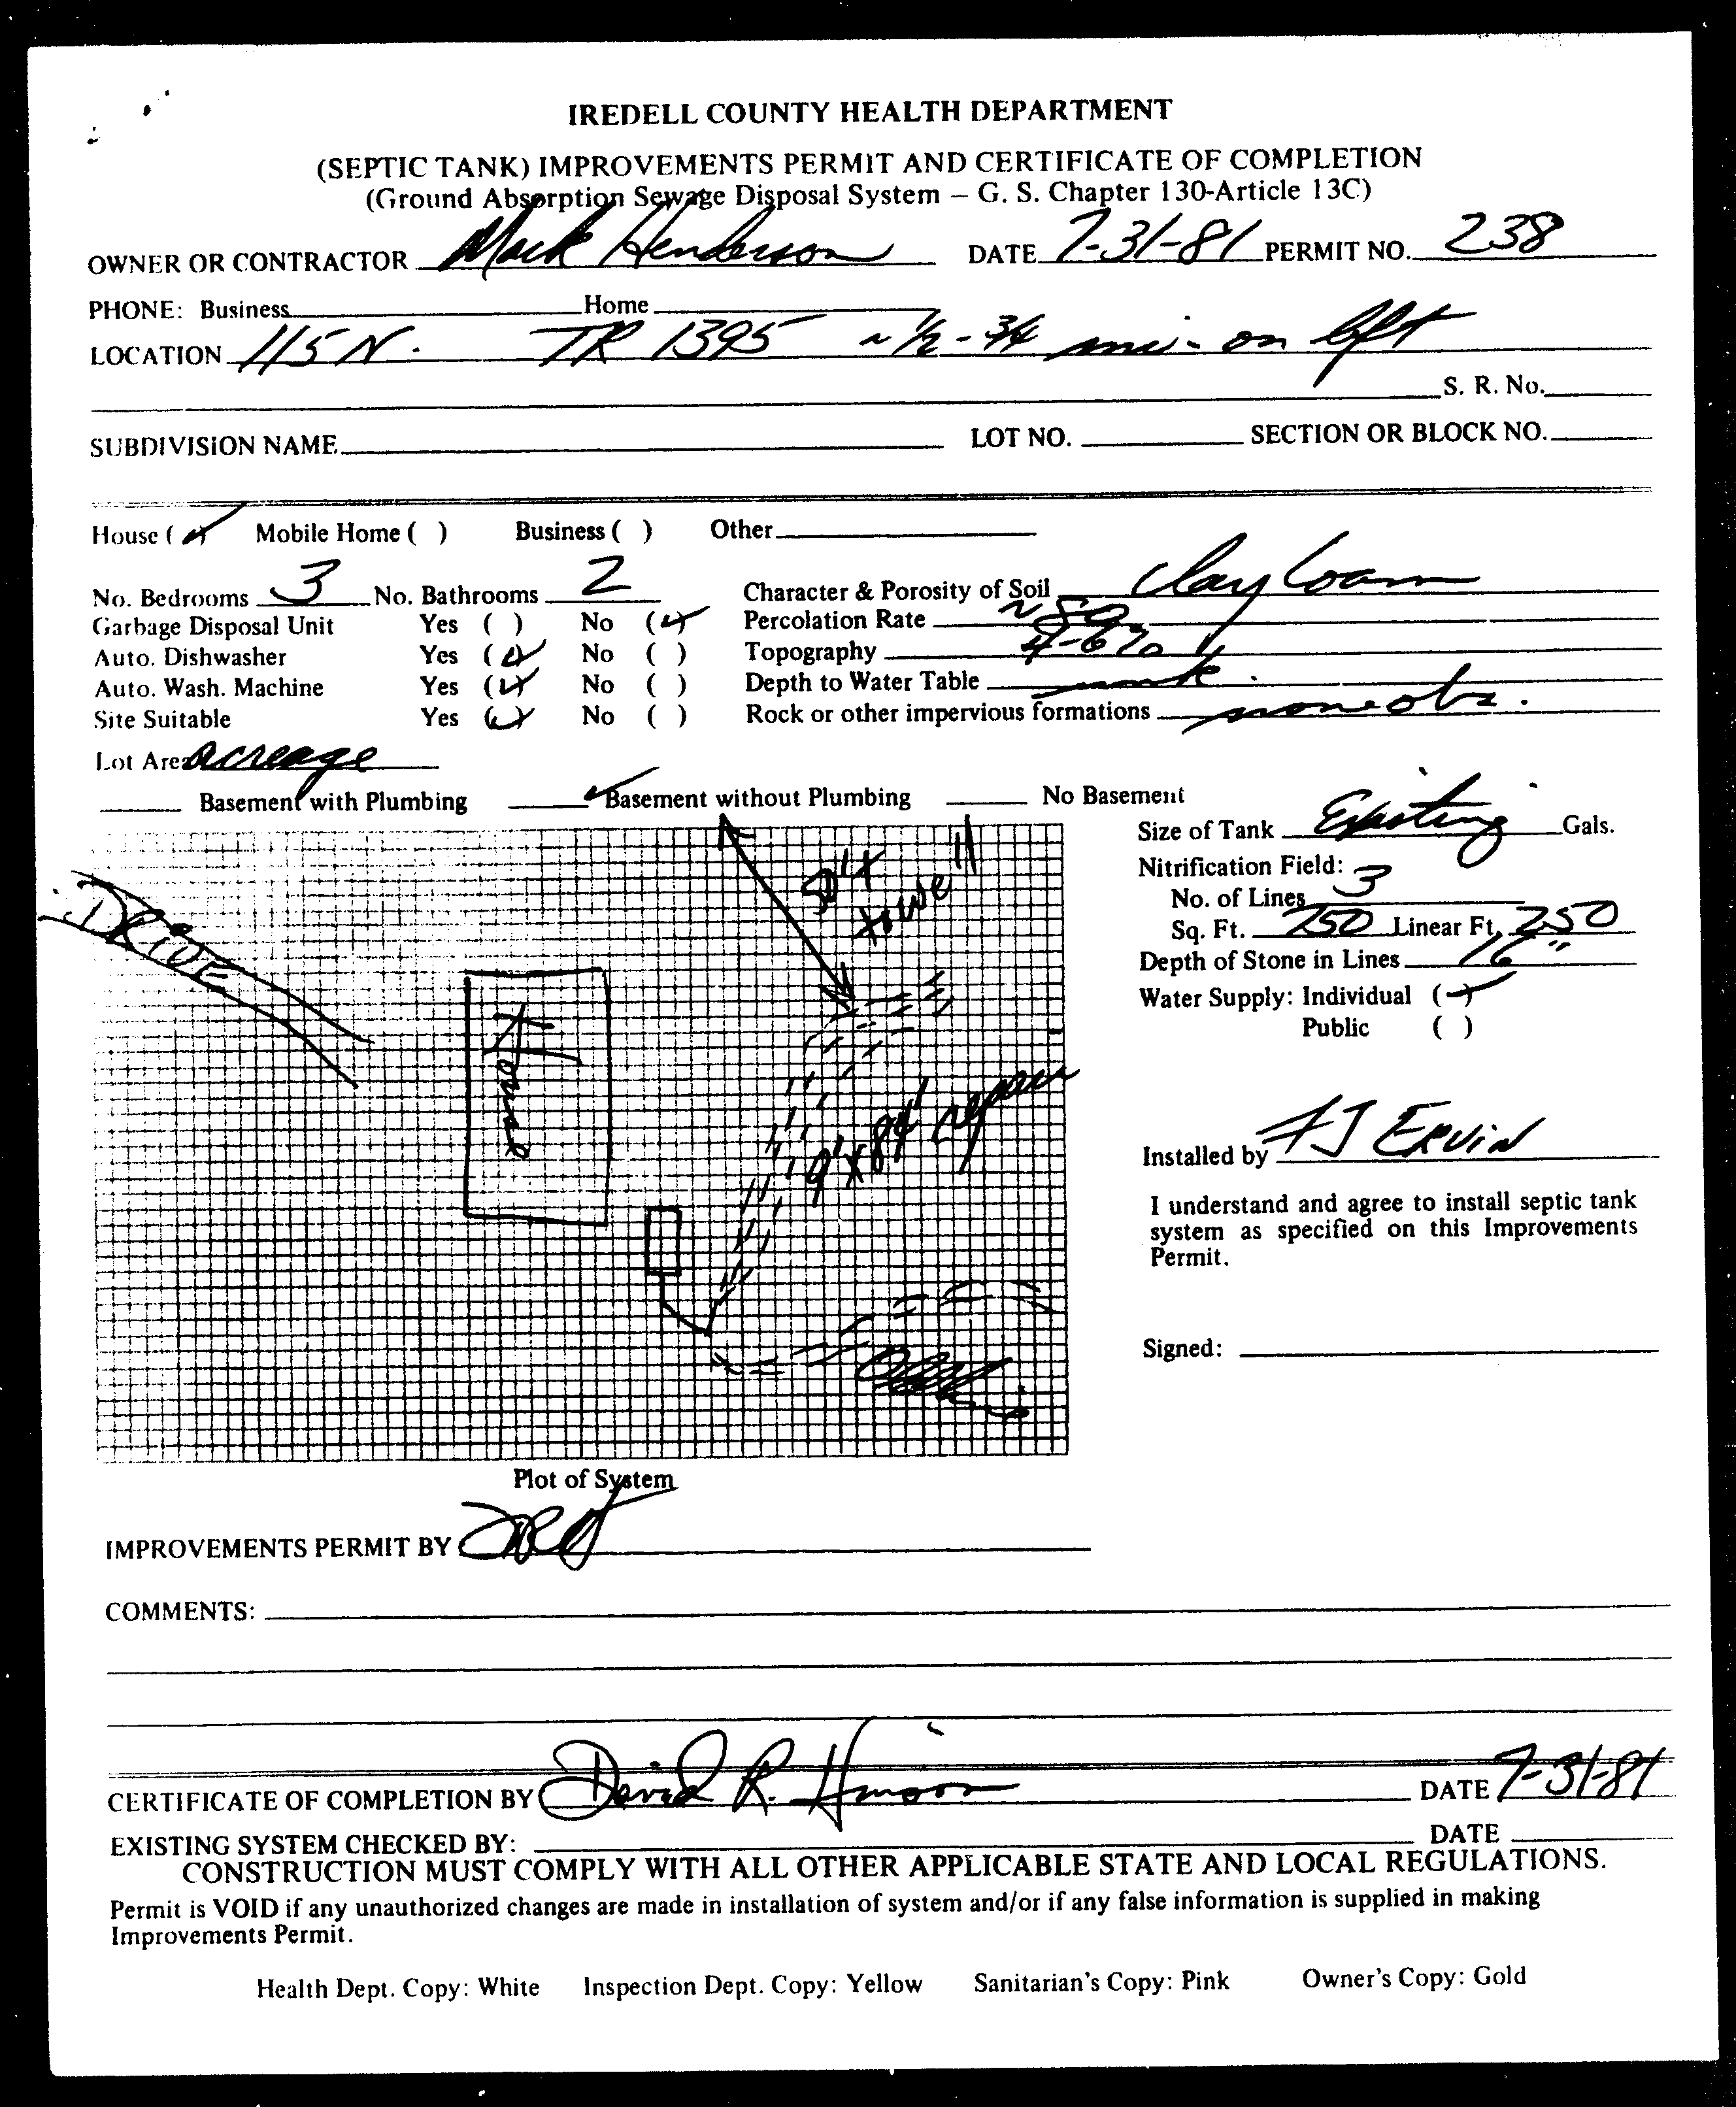 IREDELL COUNTY HEALTH DEPARTMENT
(SEPTIC TANK) IMPROVEMENTS PERMIT AND CERTIFICATE OF COMPLETION
(Ground Absorption Sewage Disposal System – G. S. Chapter 130-Article 13C)
OWNER OR CONTRACTOR Mack Henderson DATE 7-31-81 PERMIT NO. 238
PHONE: Business Home
LOCATION 115 N. TR 1395 ~ 1/2 - 3/4 mi - on left
S. R. No.
SUBDIVISION NAME LOT NO. SECTION OR BLOCK NO.
House (✓) Mobile Home ( ) Business ( ) Other
No. Bedrooms 3 No. Bathrooms 2 Character & Porosity of Soil Clay Loam
Garbage Disposal Unit Yes ( ) No (✓) Percolation Rate ~ 50
Auto. Dishwasher Yes (✓) No ( ) Topography 4-6%
Auto. Wash. Machine Yes (✓) No ( ) Depth to Water Table
Site Suitable Yes (✓) No ( ) Rock or other impervious formations none obs.
Lot Area acreage
Basement with Plumbing ✓ Basement without Plumbing No Basement
Size of Tank Existing Gals.
Nitrification Field:
No. of Lines 3
Sq. Ft. 750 Linear Ft. 250
Depth of Stone in Lines 16"
Water Supply: Individual (✓)
Public ( )
DRIVE
House
50'+
to well
9'x84' repair
Installed by FJ ERVIN
I understand and agree to install septic tank
system as specified on this Improvements
Permit.
Signed:
Plot of System
IMPROVEMENTS PERMIT BY
COMMENTS:
CERTIFICATE OF COMPLETION BY David R. Hinson DATE 7-31-81
EXISTING SYSTEM CHECKED BY: DATE
CONSTRUCTION MUST COMPLY WITH ALL OTHER APPLICABLE STATE AND LOCAL REGULATIONS.
Permit is VOID if any unauthorized changes are made in installation of system and/or if any false information is supplied in making
Improvements Permit.
Health Dept. Copy: White Inspection Dept. Copy: Yellow Sanitarian's Copy: Pink Owner's Copy: Gold